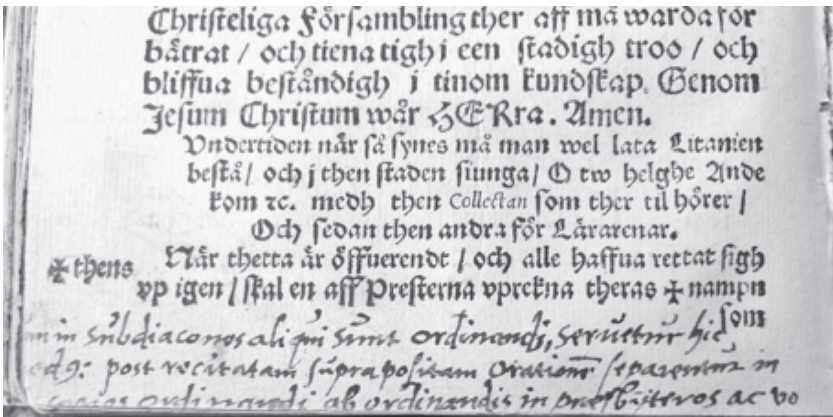 Christeliga Försambling ther aff må warda för
bätrat / och tiena tigh i een stadigh troo / och
bliffua beståndigh i tinom kundskap. Genom
Jesum Christum wår HERra. Amen.
Vndertiden när så synes må man wel lata Litanien
bestå / och j then staden siunga / O tw helghe Ande
kom ꝛc. medh then Collectan som ther til hörer /
Och sedan then andra för Lärarenar.
När thetta är öffuerendt / och alle haffua rettat sigh
✠ thens
vp igen / skal en aff Presterna vprekna theras ✠ nampn
som
in Subdiaconos aliqui sunt ordinandi, seruetur hic
post recitatam supra positam orationē separentur in
ordinandi ab ordinandis in presbyteros ac vo